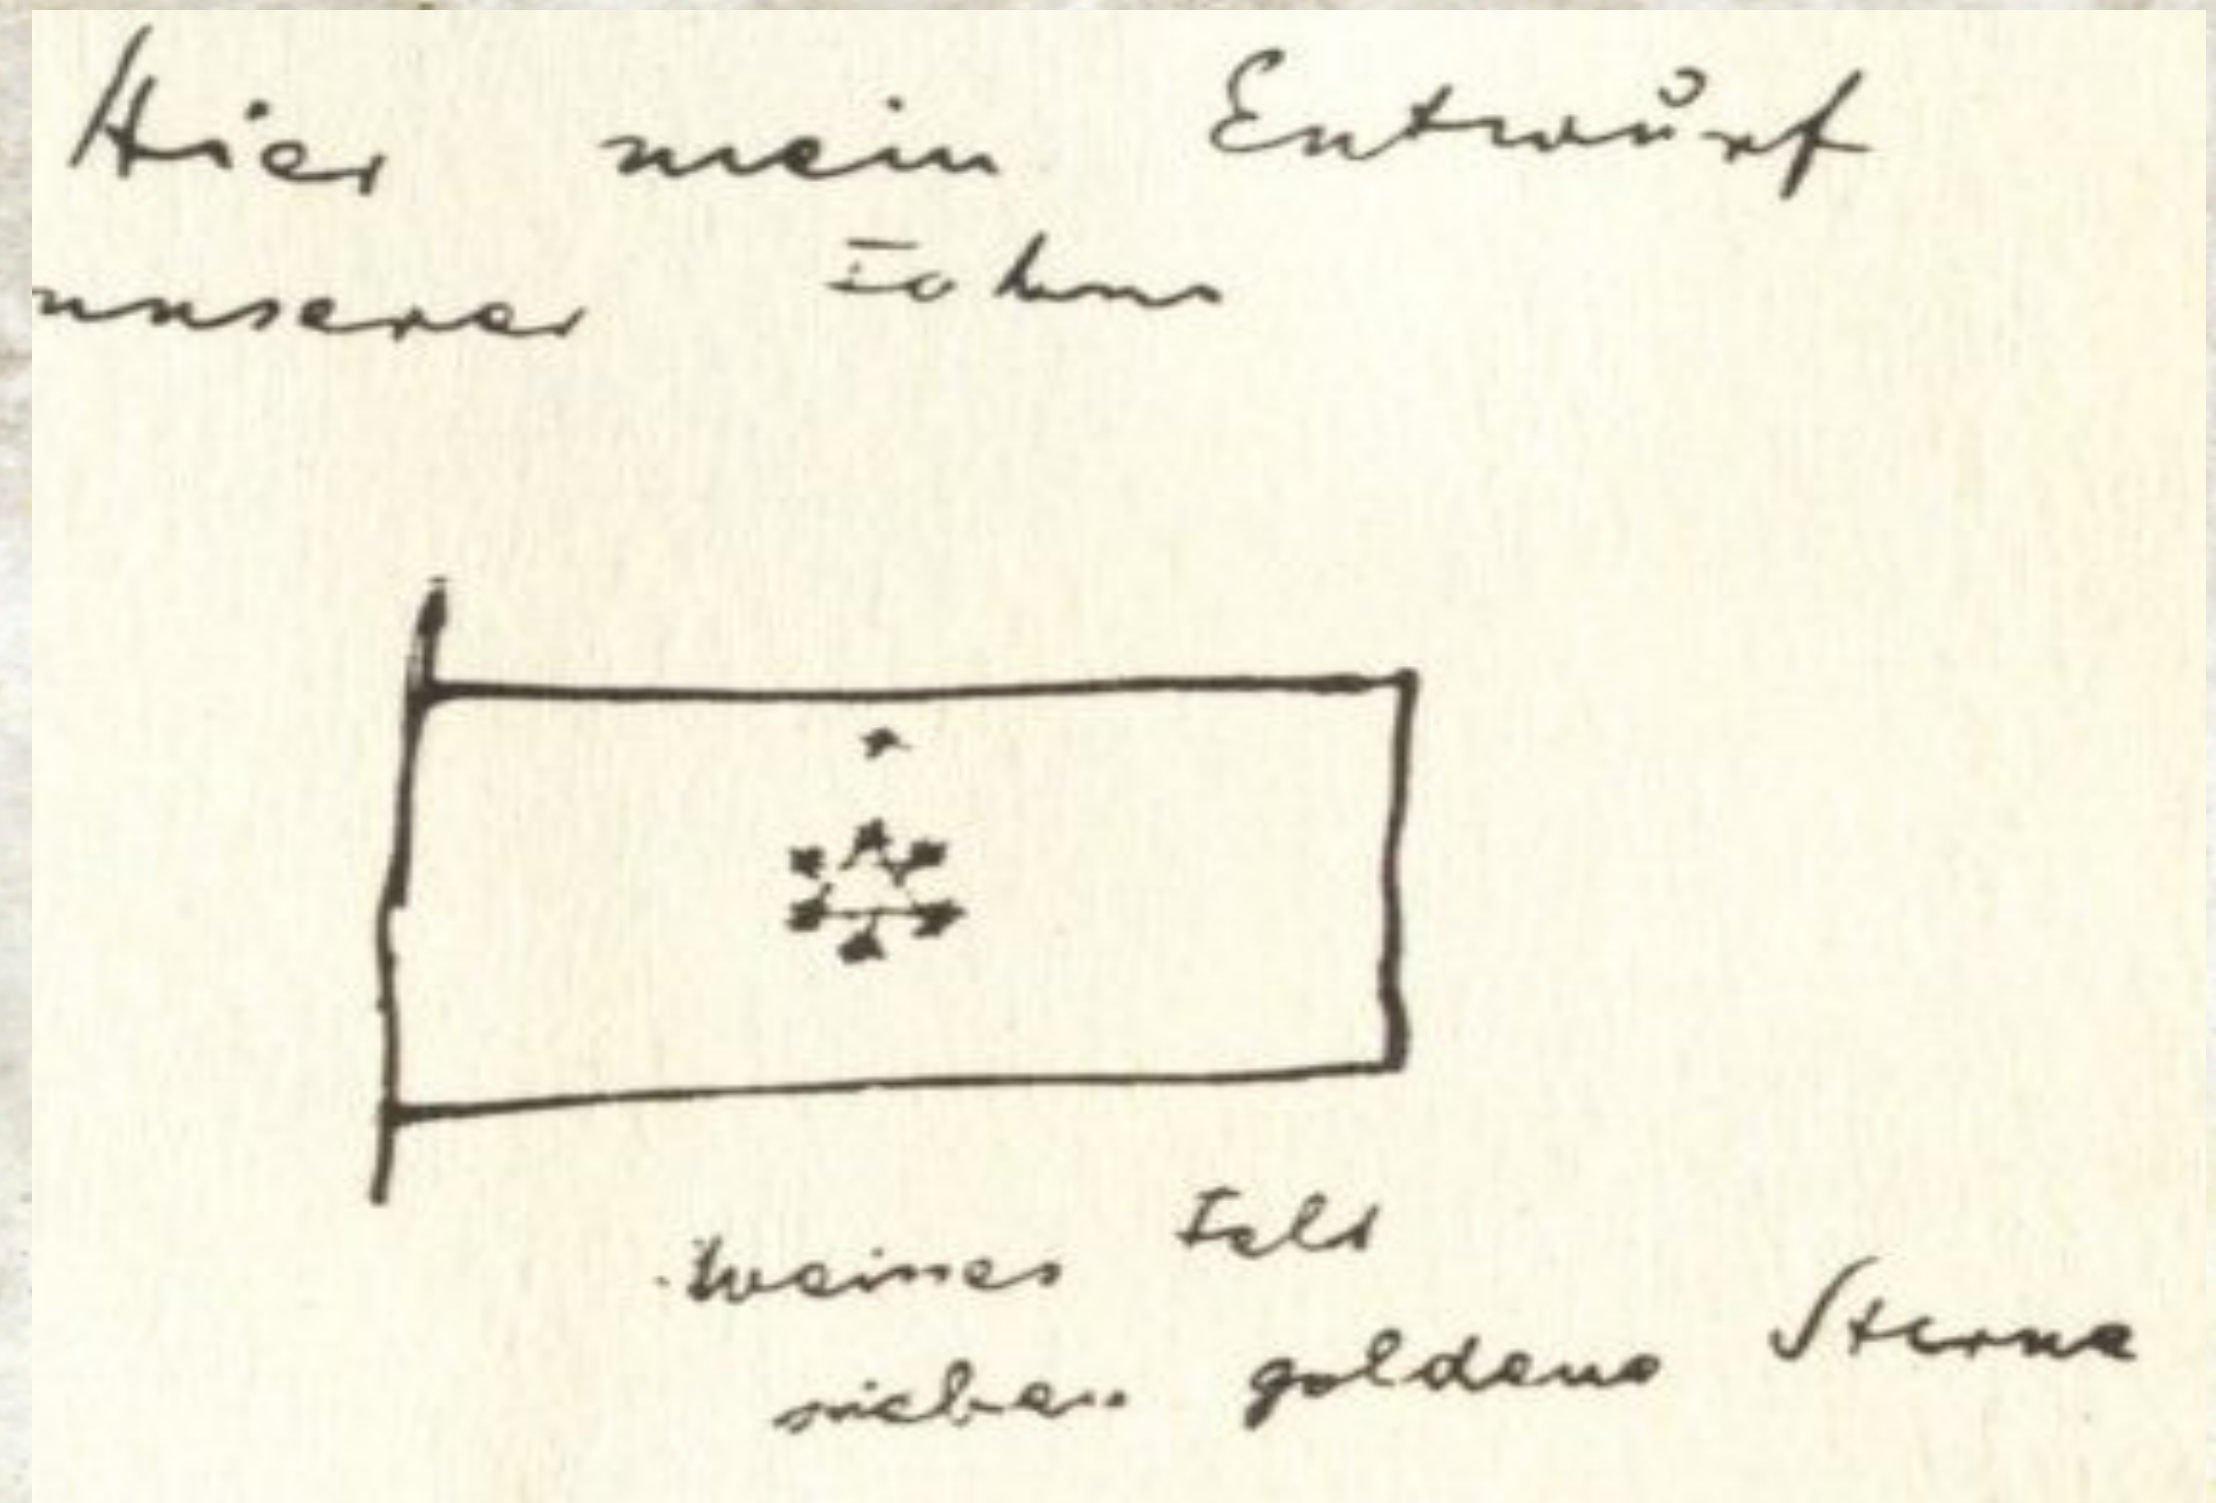 Hier mein Entwurf
unserer Fahne
weisses Feld
sieben goldene Sterne